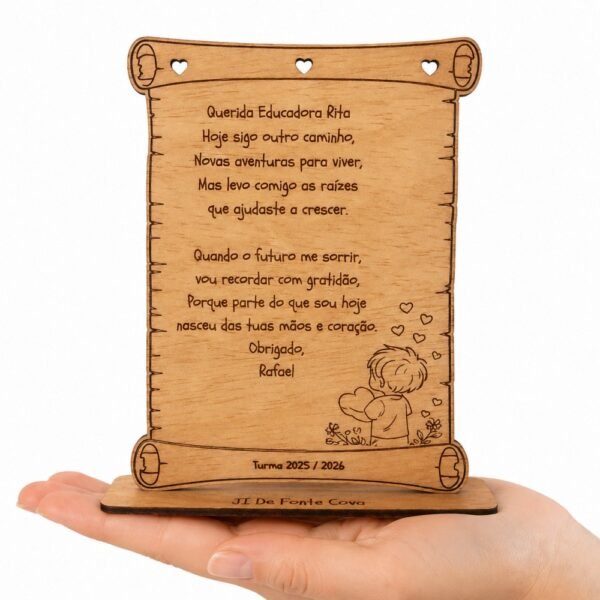 Querida Educadora Rita
Hoje sigo outro caminho,
Novas aventuras para viver,
Mas levo comigo as raízes
que ajudaste a crescer.
Quando o futuro me sorrir,
vou recordar com gratidão,
Porque parte do que sou hoje
nasceu das tuas mãos e coração.
Obrigado,
Rafael
Turma 2025 / 2026
JI De Fonte Cova